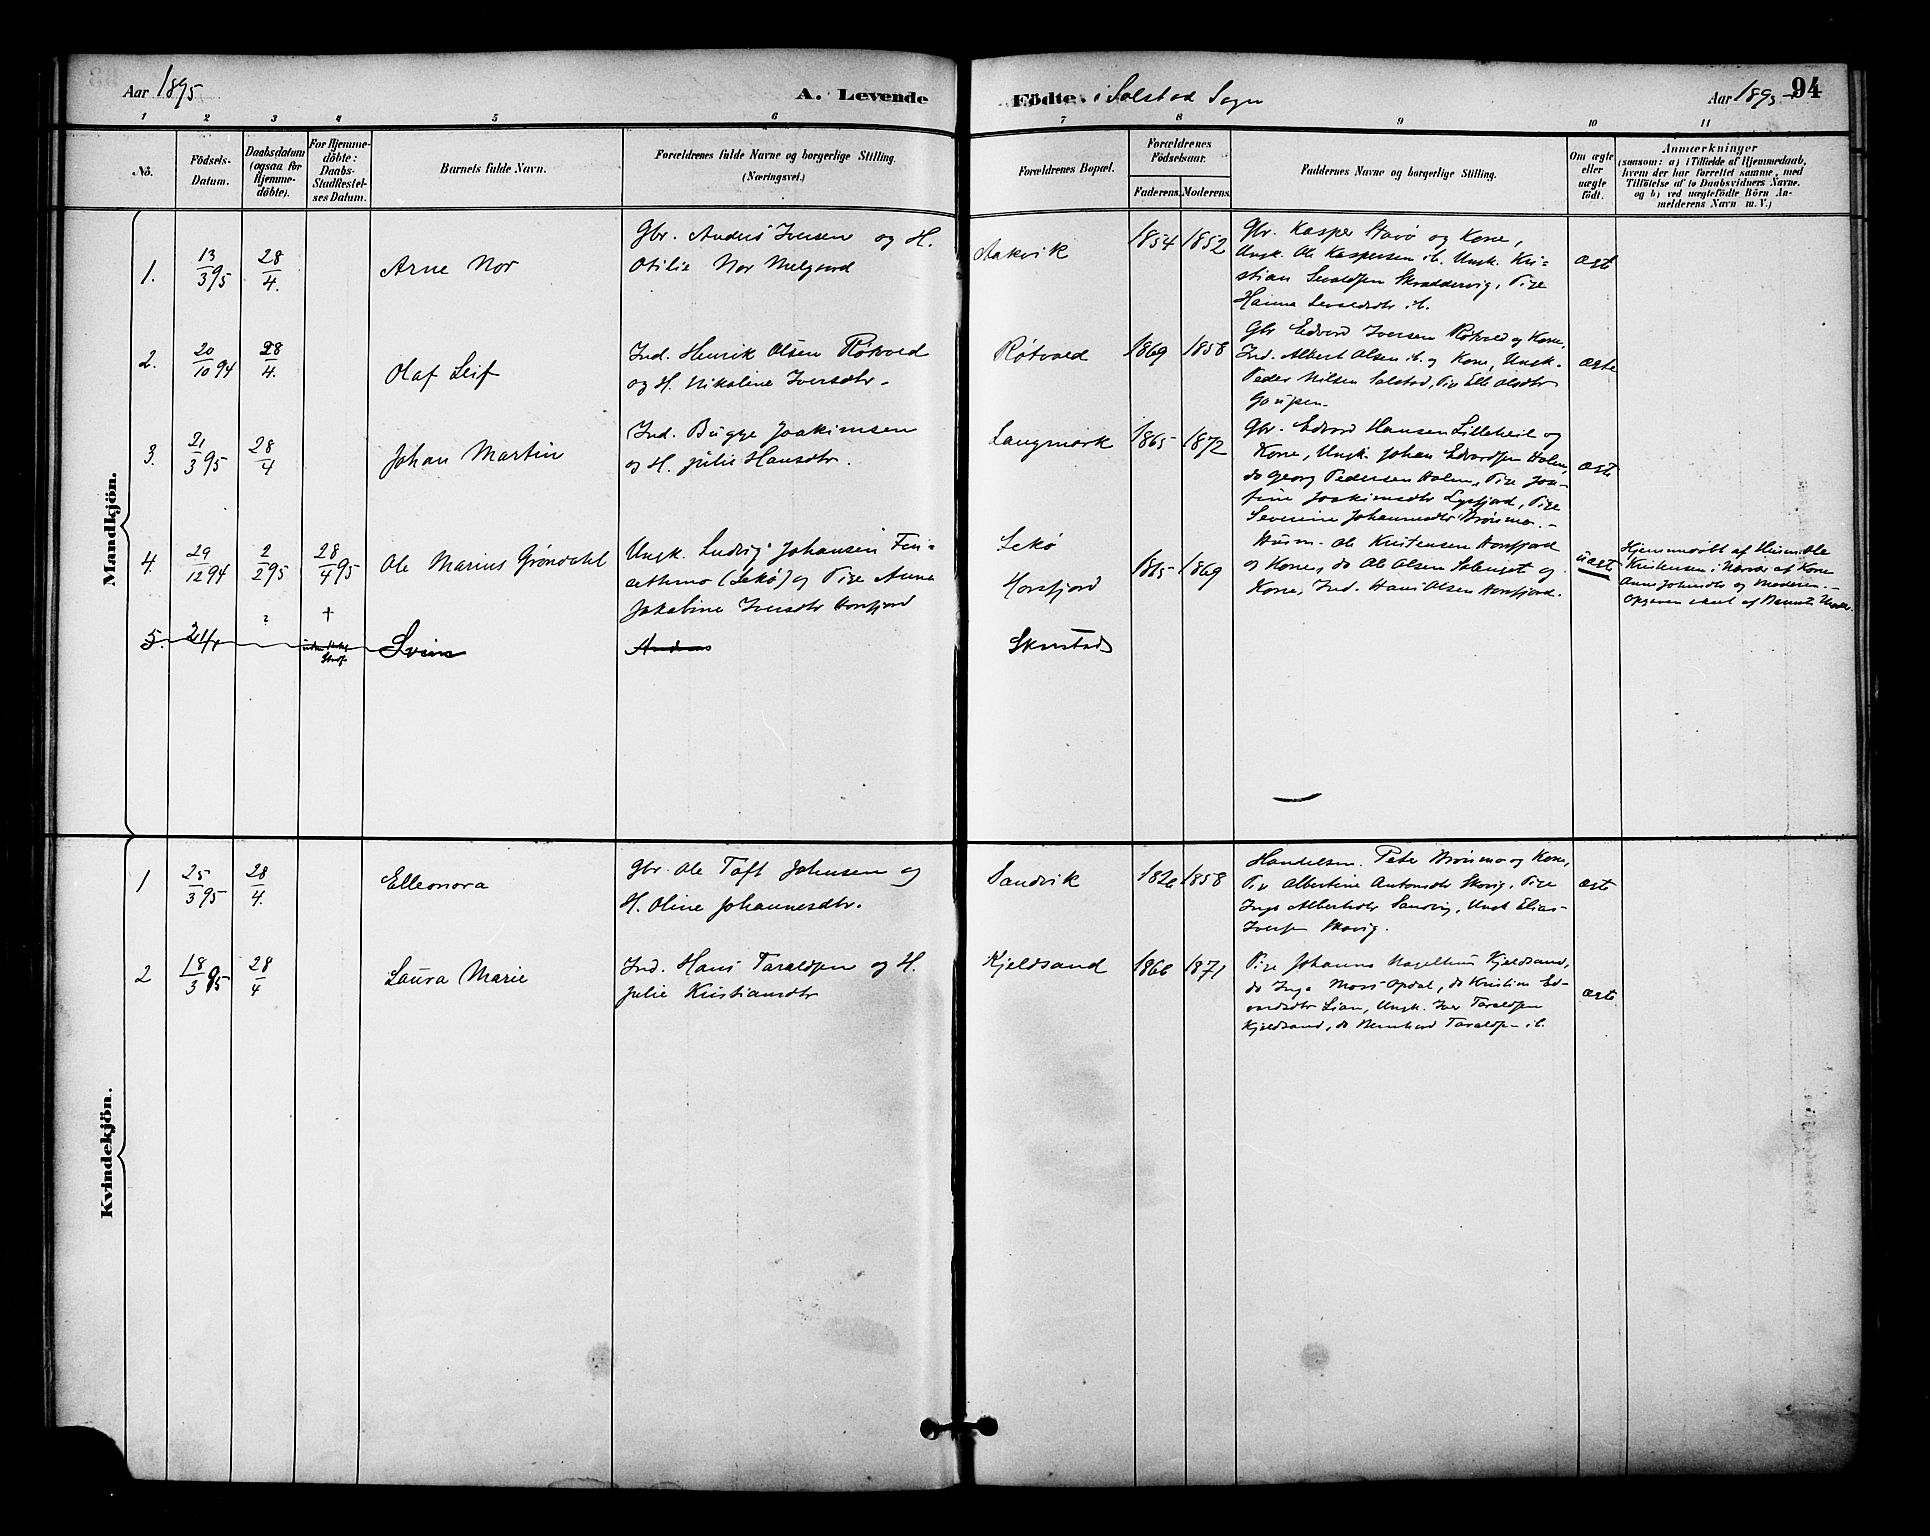 Aar 1895
A. Levende
Födte. i Solstad Sogn
Aar 1895
94
1 2 3 4 5 6 7 8 9 10 11
No.
Födsels-
Datum.
Daabsdatum
(ogsaa for
Hjemme-
döbte).
For Hjemme-
döbte:
Daabs-
Stadfæstel-
ses Datum.
Barnets fulde Navn.
Forældrenes fulde Navne og borgerlige Stilling.
(Næringsvei.)
Forældrenes Bopæl.
Forældrenes
Födselsaar.
Faderens. Moderens.
Faddernes Navne og borgerlige Stilling.
Om ægte
eller
uægte
født.
Anmærkninger
(saasom: a) i Tilfælde af Hjemmedaab,
hvem der har forrettet samme, med
Tilföielse af to Daabsvidners Navne.
og b) ved uægtefödte Börn An-
melderens Navn m. V.)
Mandkjön.
1.
13/3 95
28/4.
Arne Nor
Gbr. Anders Iversen og H.
Otilie Nor Melgaard
Aakvik
1854 1852
Gbr. Kasper Stavø og Kone,
Ungk. Ole Kaspersen ib. Ungk. Kri-
stian Sivaldsen Skræddervig, Pige
Hanna ib.
ægte
2.
20/10 94
28/4.
Olaf Leif
Ind. Henrik Olsen Røtvold
og H. Nikoline Iversdtr.
Røtvold
1869 1858
Gbr Edvard Iversen Røtvold og Kone,
Ind. Albert Olsen ib. og Kone, Ungk.
Peder Nilsen Solstad, Pige Elle Olsdtr
Gaupen.
ægte
3.
21/3 95
28/4
Johan Martin
Ind. Bugge Joakimsen
og H. Julie Hansdtr.
Langmark
1865 1872
Gbr. Edvard Hansen Lilleheil og
Kone, Ungk. Johan Edvardsen Holm,
do Georg Pedersen Holm, Pige Jo-
fine Joakimsdtr Lysfjord, Pige
Severine Johannesdtr Brønmo.
ægte
4.
29/12 94
2/2 95
28/4 95
Ole Marius Grøndahl
Ungk. Ludvig Johansen Fin-
æthmo (Lekø) og Pige Anna
Jakobine Iversdtr Horsfjord
Lekø
Horsfjord
1865 1869
Husm. Ole Kristensen Horsfjord
og Kone, do Ole Olsen og
Kone, Ind. Hans Olsen Horsfjord.
uægte
Hjemmedöbt af Husm. Ole
Kristensen i Nærvær af Kone
Anne Johnsdtr og Moderen.
Opgaven af Barnets
? †
5. 21/1
Svein
Andreas
Skarstad
Kvindekjön.
1
25/3 95
28/4.
Elleonora
Gbr. Ole Toft Johnsen og
H. Oline Johannesdtr.
Sandvik
1826 1858
Handelsm. Peter Brønmo og Kone,
Pige Albertine Antonsdtr Skovig, Pige
Inga Albertsdtr Sandvig, Ungk Elias
Iversen Skovig.
ægte
2
18/3 95
28/4
Laura Marie
Ind. Hans Taraldsen og H.
Julie Kristiansdtr
Kjeldsand
1866 1871
Pige Johanna Kjeldsand,
do Inga Moss Opdal, do Kristine Ed-
vardsdtr Lian, Ungk. Iver Taraldsen
Kjeldsand, do Bernhard Taraldsen ib.
ægte.